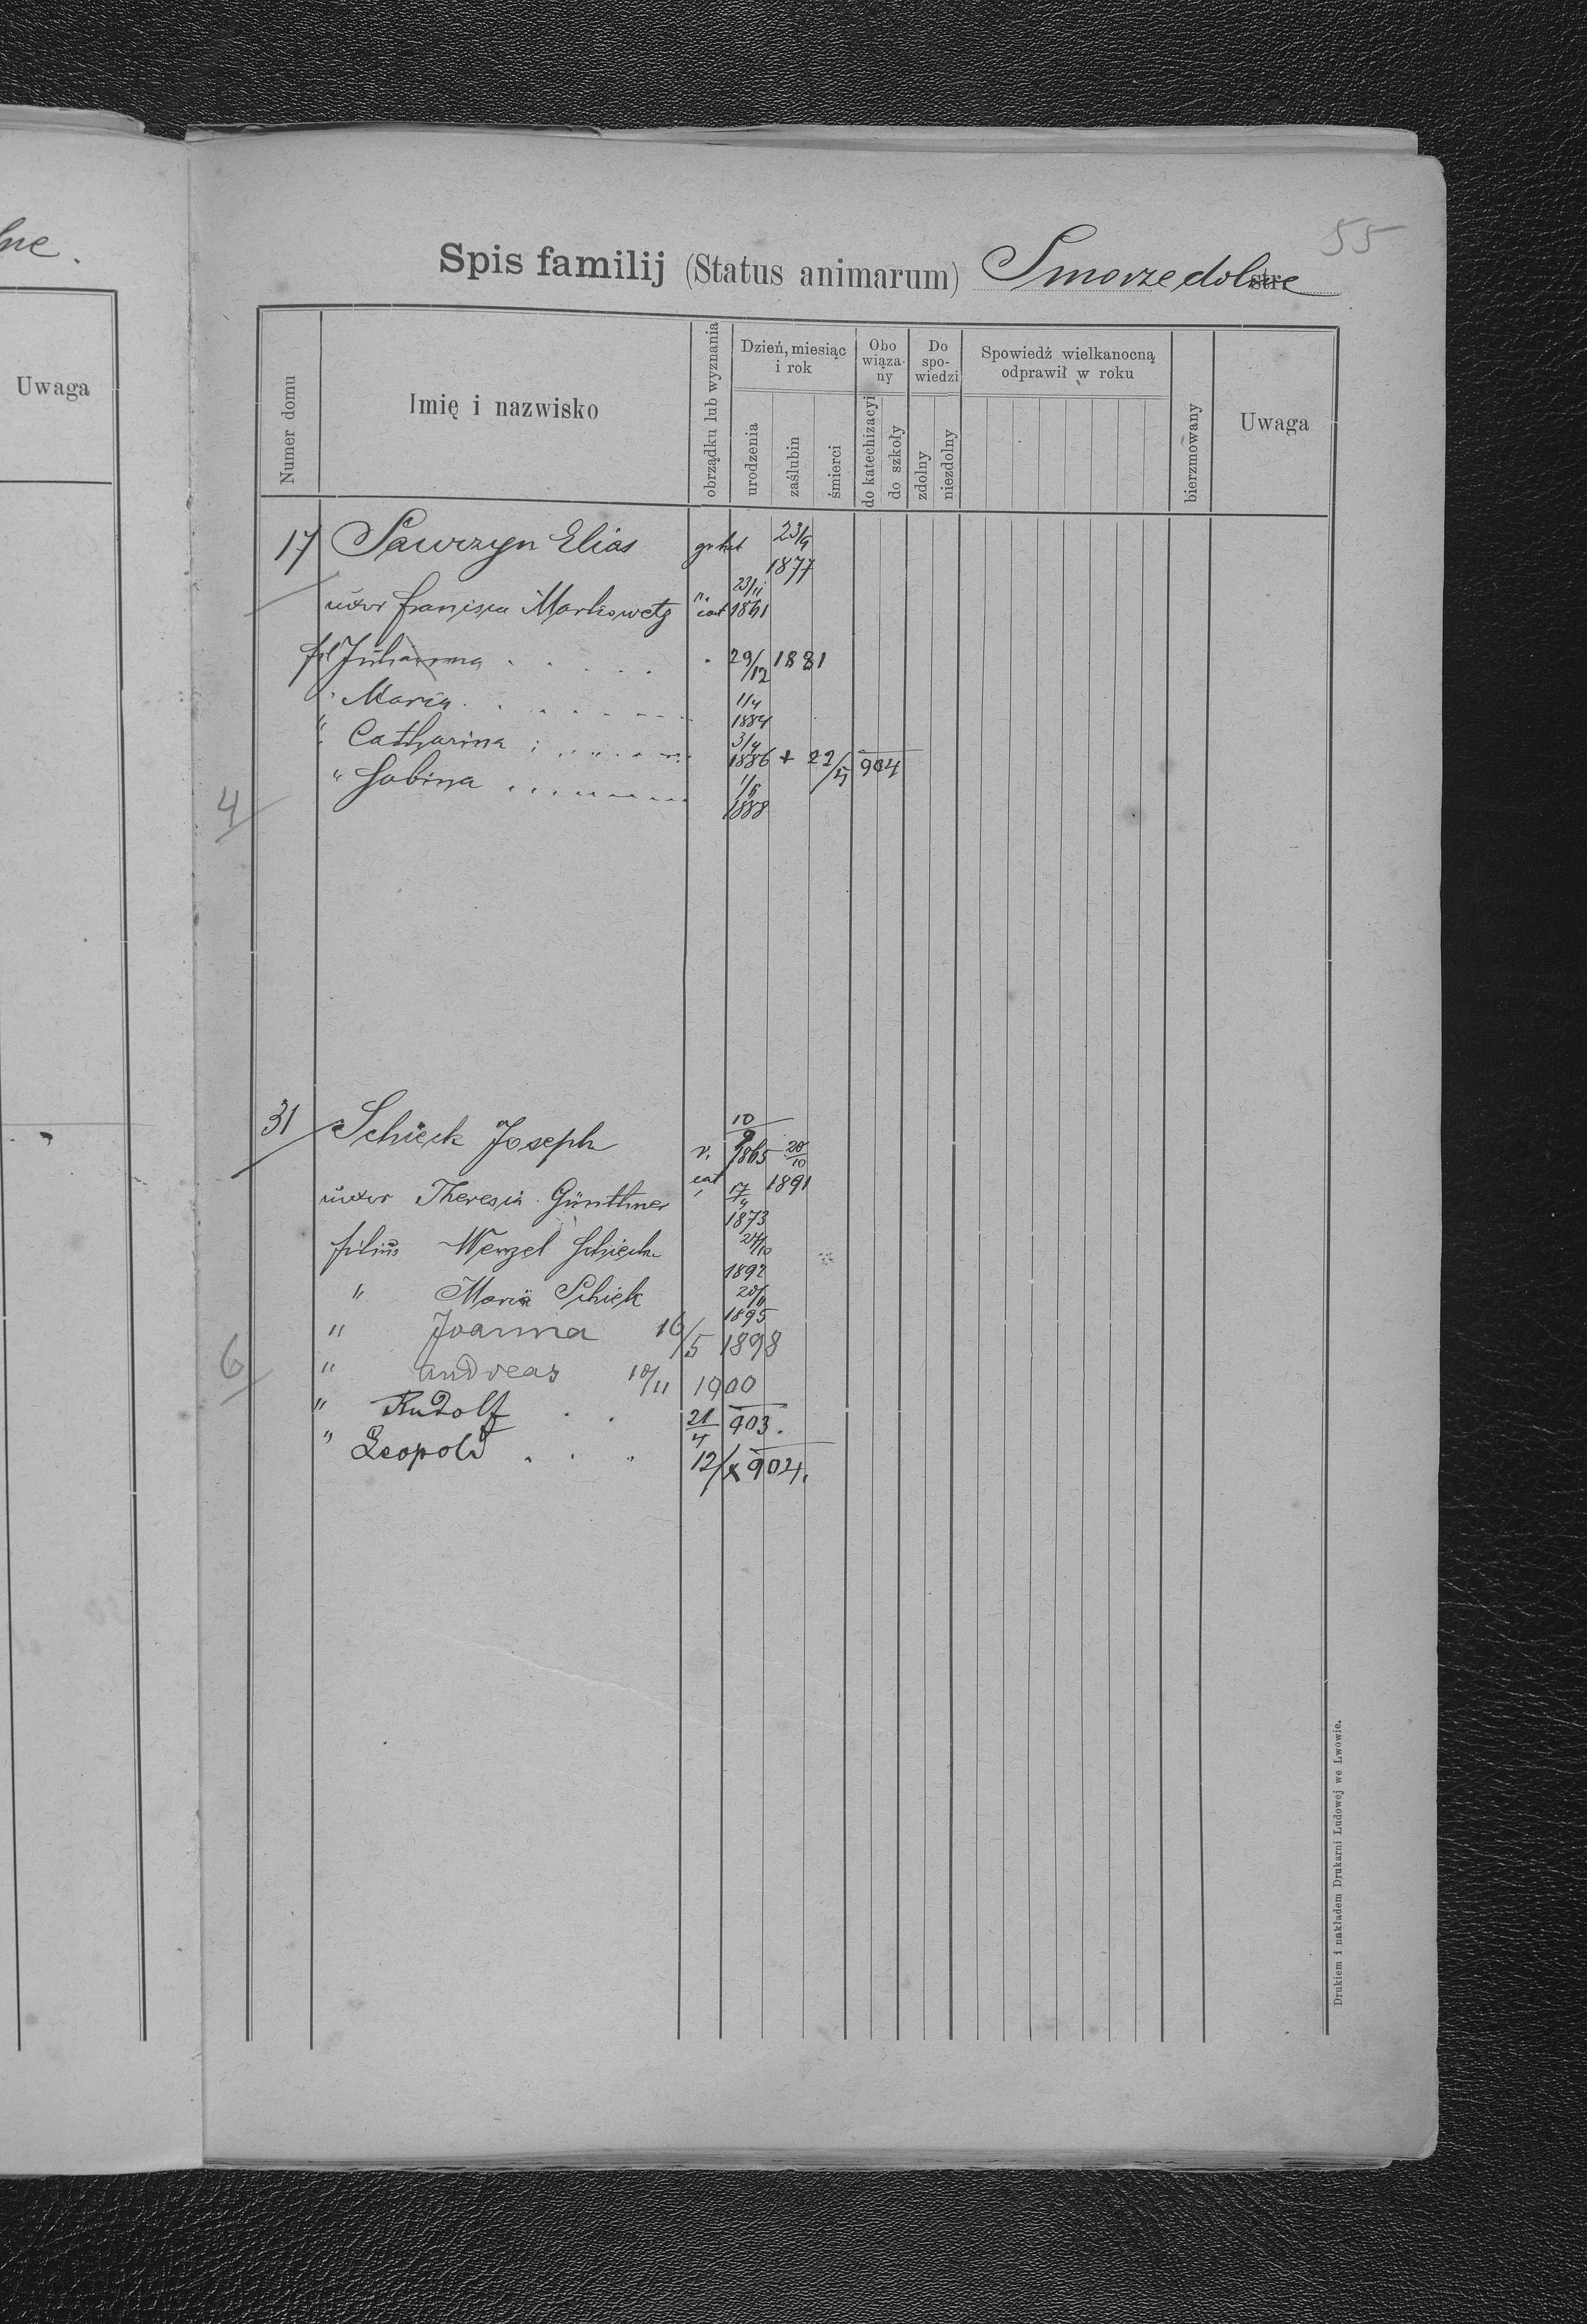 lne.
Uwaga
55
Spis familij (Status animarum) Smorze dolne str.
Numer domu
Imię i nazwisko
obrządku lub wyznania
Dzień, miesiąc i rok
urodzenia
zaślubin
śmierci
Obowiąza-ny
do katechizacyi
do szkoły
Do spo-wiedzi
zdolny
niezdolny
Spowiedź wielkanocną odprawił w roku
bierzmowany
Uwaga
17 Sawrzyn Elias gr kat 23/9 1877
uxor Francisca Markowetz r. cat 23/11 1861
fil Julianna 29/12 1881
" Maria 1/4 1884
" Catharina 3/4 1886 + 22/5 904
" Sabina 1/5 1888
4
31 Schieck Joseph r. cat 10/9 1865 20/10 1891
uxor Theresia Günthner " 17/4 1873
filius Wenzel Schieck 24/10 1892
" Maria Schiek 20/11 1895
" Joanna 16/5 1898
6
" Andreas 10/11 1900
" Rudolf 21/4 903.
" Leopold 12/x 904.
Drukiem i nakładem Drukarni Ludowej we Lwowie.